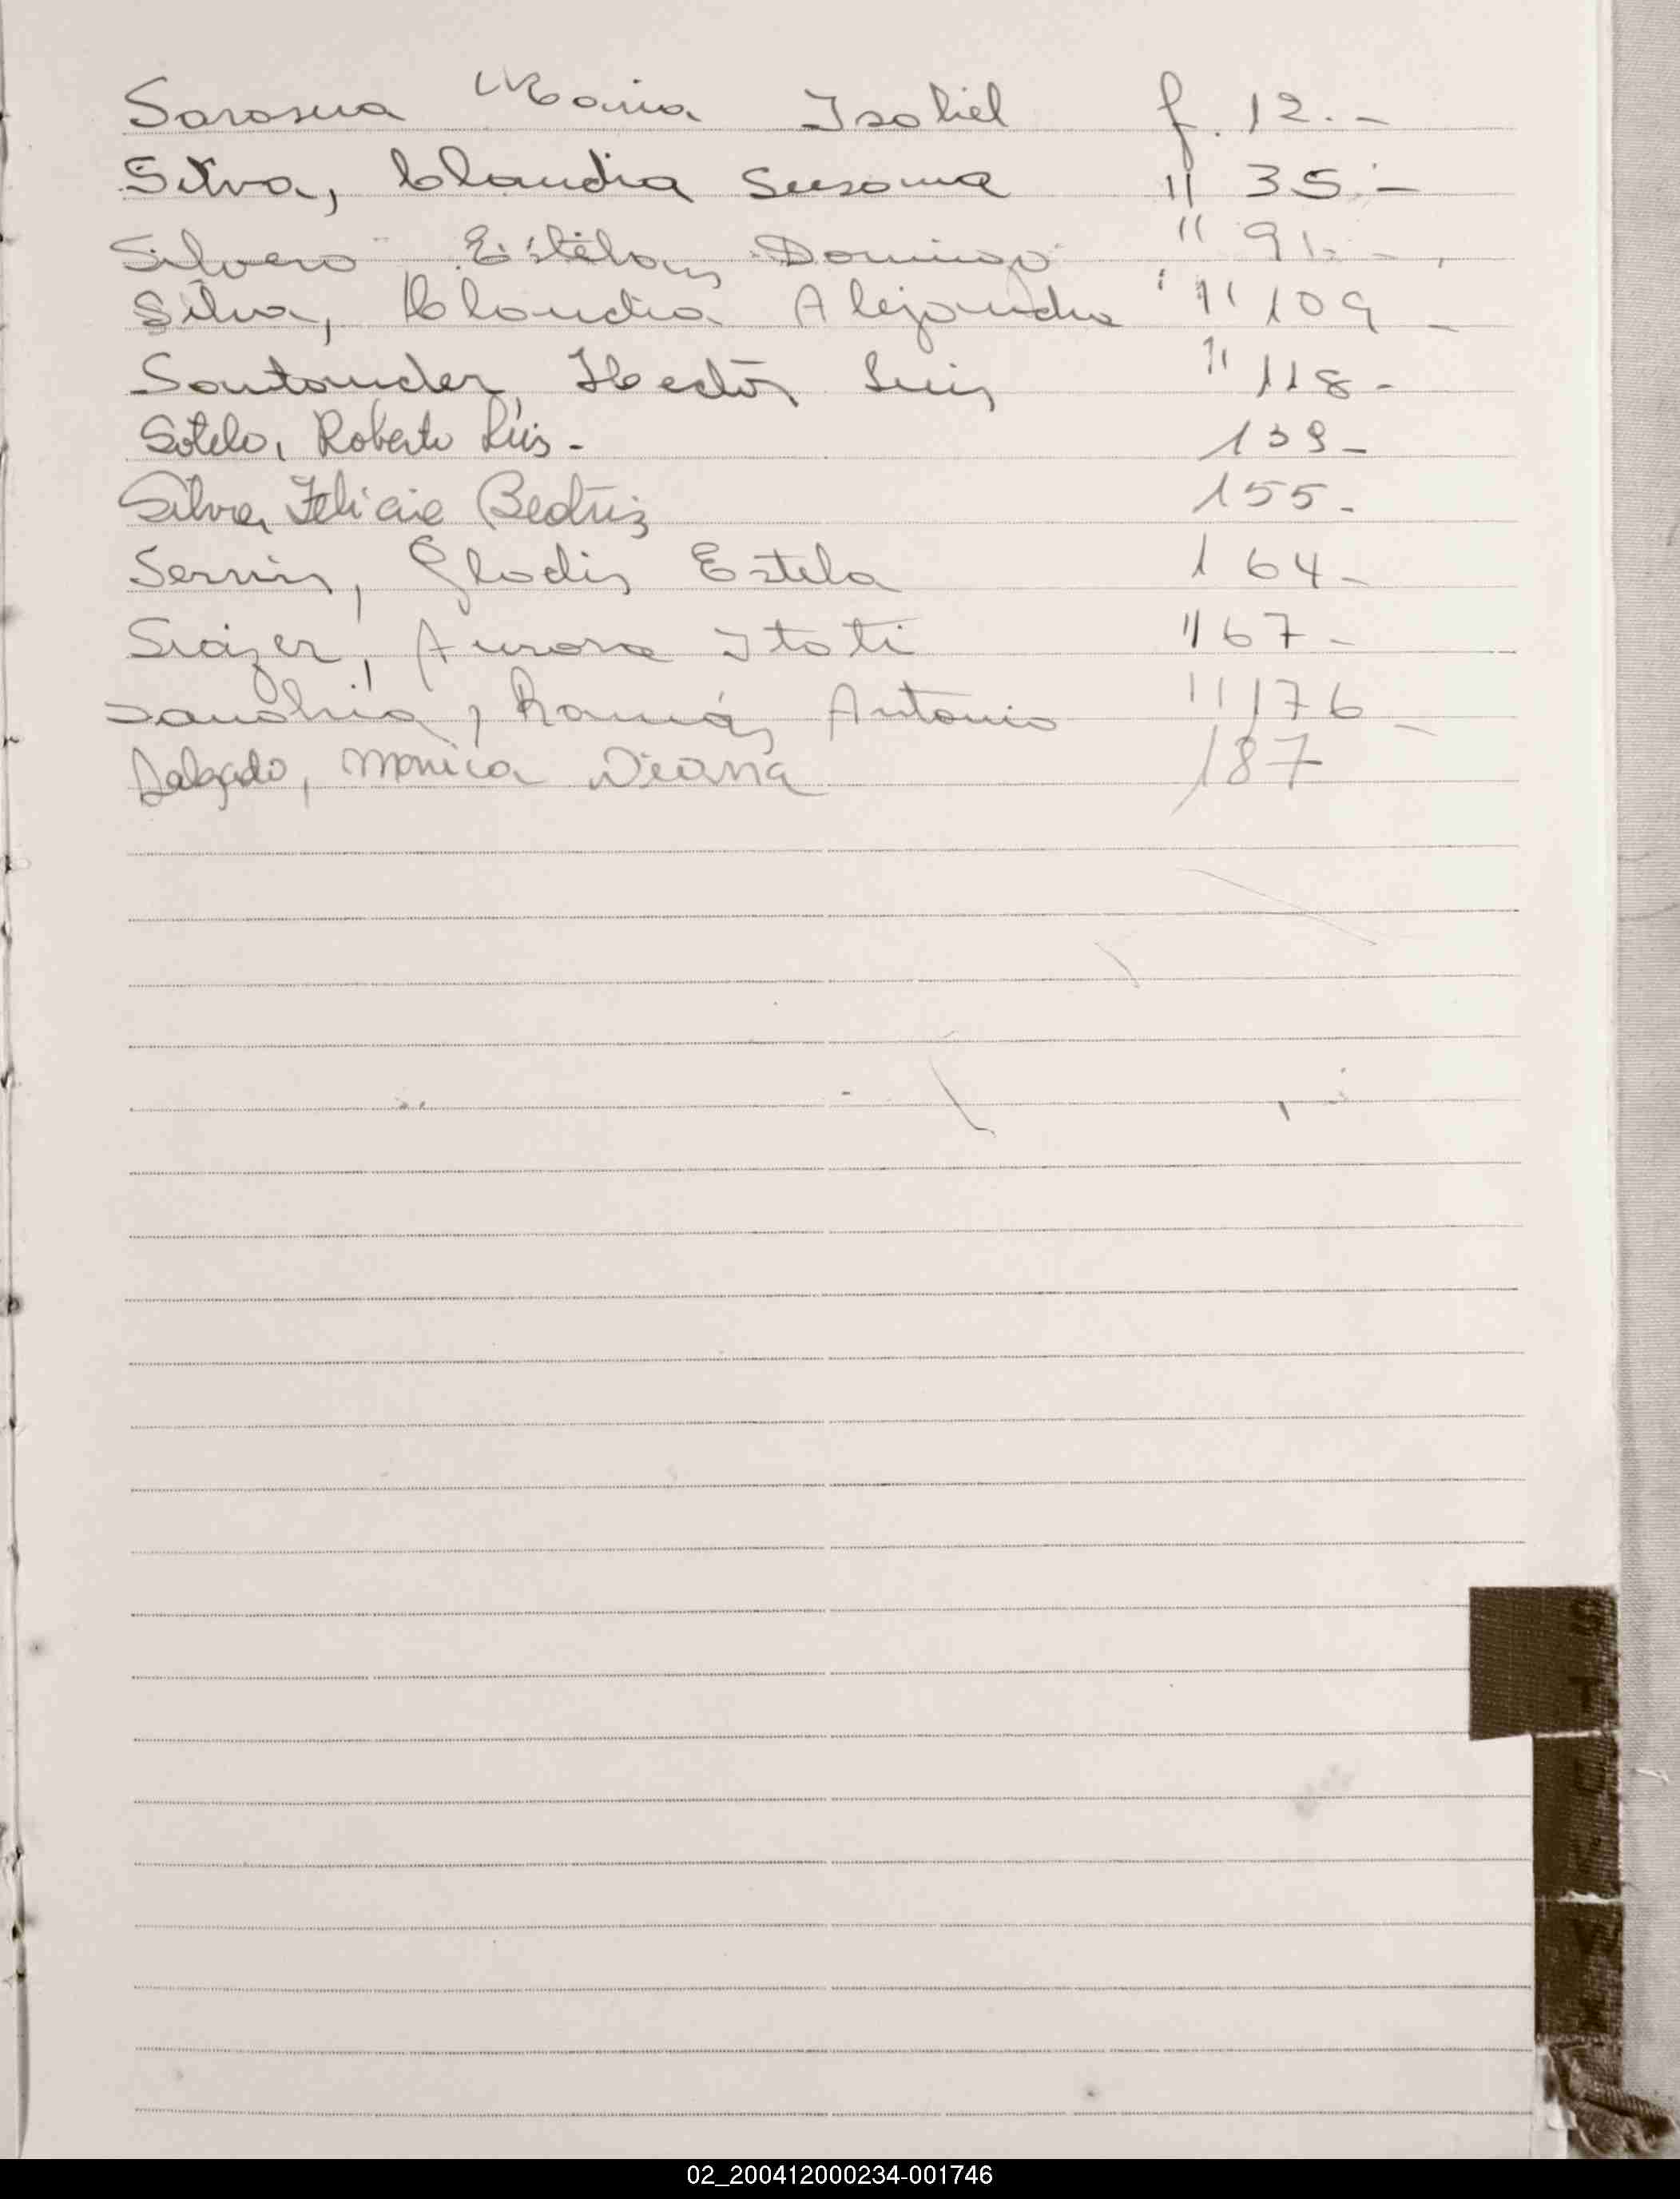 Sarasua Maria Isabel f. 12.-
Silva, Claudia Susana " 35.-
Silvero Estéban Domingo " 91.-
Silva, Claudia Alejandra " 109-
Santander, Hector Luis " 118-
Sotelo, Roberto Luis - 139-
Silva, Felicia Beatriz 155-
Servin, Gladis Estela 164-
Aurora Itati "167-
Sanabria, Ramón Antonio "176-
Salgado, Monica Diana 187
S
T
U
V
02_200412000234-001746